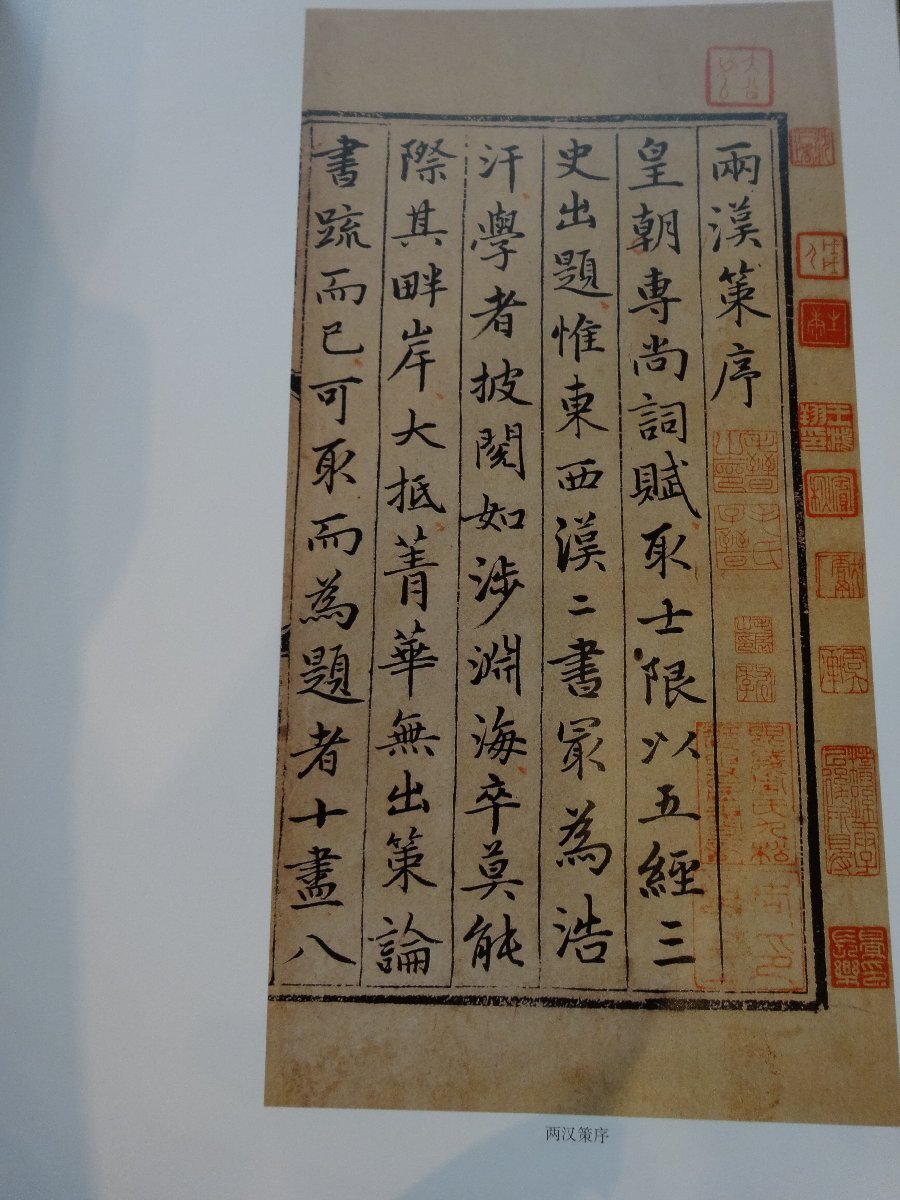 兩漢策序
皇朝專尚詞賦取士限以五經三
史出題惟東西漢二書冣為浩
汗學者披閱如涉淵海卒莫能
際其畔岸大抵菁華無出策論
書䟽而已可取而為題者十盡八
两汉策序